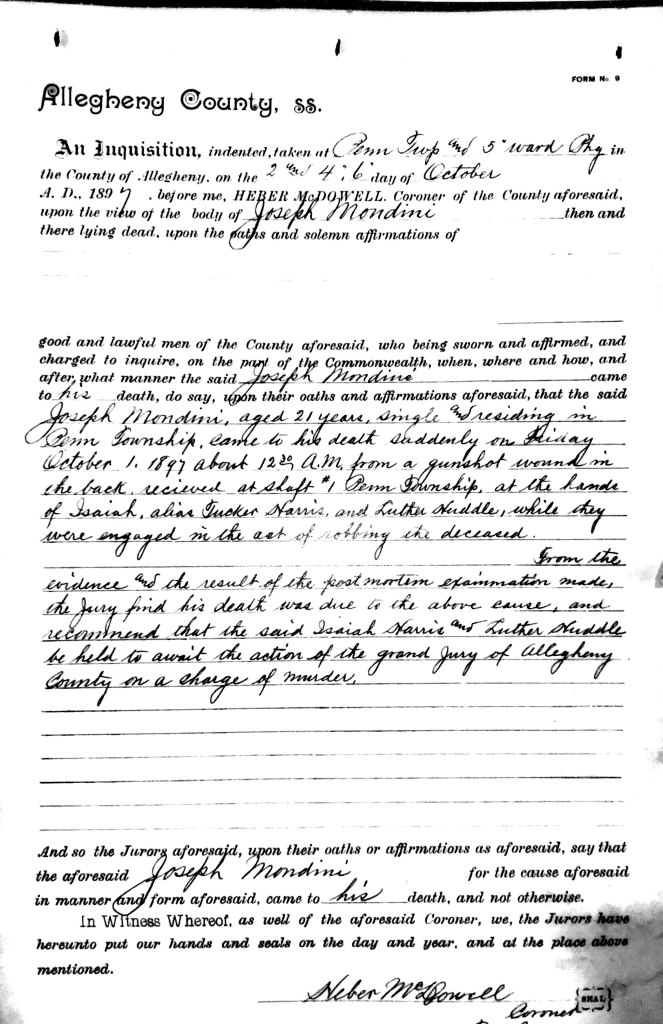 FORM No. 9
Allegheny County, ss.
An Inquisition, indented, taken at Penn Twp and 5" ward Phg in
the County of Allegheny, on the 2 and 4", 6" day of October
A. D., 1897, before me, HEBER McDOWELL, Coroner of the County aforesaid,
upon the view of the body of Joseph Mondini then and
there lying dead, upon the oaths and solemn affirmations of
good and lawful men of the County aforesaid, who being sworn and affirmed, and
charged to inquire, on the part of the Commonwealth, when, where and how, and
after what manner the said Joseph Mondini came
to his death, do say, upon their oaths and affirmations aforesaid, that the said
Joseph Mondini, aged 21 years, single and residing in
Penn Township, came to his death suddenly on Friday
October 1. 1897 about 12 30 A.M. from a gunshot wound in
the back, recieved at shaft #1 Penn Township, at the hands
of Isaiah, alias Tucker Harris, and Luther Huddle, while they
were engaged in the act of robbing the deceased.
From the
evidence and the result of the postmortem examination made,
the Jury find his death was due to the above cause, and
recommend that the said Isaiah Harris and Luther Huddle
be held to await the action of the grand Jury of Allegheny
County on a charge of murder.
And so the Jurors aforesaid, upon their oaths or affirmations as aforesaid, say that
the aforesaid Joseph Mondini for the cause aforesaid
in manner and form aforesaid, came to his death, and not otherwise.
In Witness Whereof, as well of the aforesaid Coroner, we, the Jurors have
hereunto put our hands and seals on the day and year, and at the place above
mentioned.
Heber McDowell SEAL
Coroner